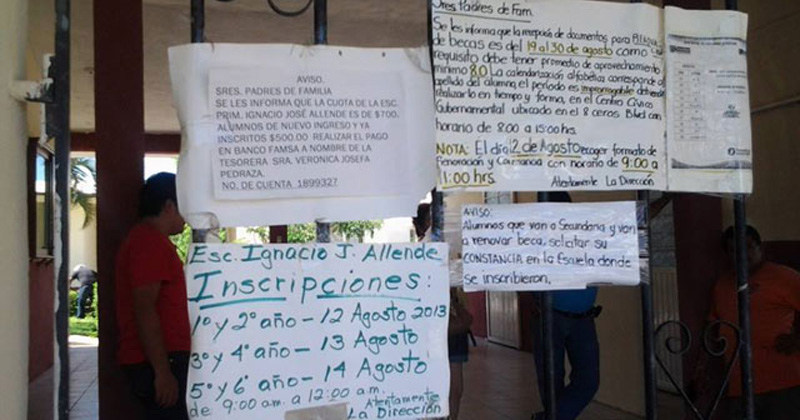 AVISO.
SRES. PADRES DE FAMILIA
SE LES INFORMA QUE LA CUOTA DE LA ESC.
PRIM. IGNACIO JOSÉ ALLENDE ES DE $700.
ALUMNOS DE NUEVO INGRESO Y YA
INSCRITOS $500.00 REALIZAR EL PAGO
EN BANCO FAMSA A NOMBRE DE LA
TESORERA SRA. VERONICA JOSEFA
PEDRAZA.
NO. DE CUENTA 1899327
Sres. Padres de Fam.
Se les informa que la recepción de documentos para
de becas es del 19 al 30 de agosto como
requisito debe tener promedio de aprovechamiento
mínimo 8.0 La calendarización alfabética corresponde al
apellido del alumno, el periodo es improrrogable
realizarlo en tiempo y forma, en el Centro Cívico
Gubernamental ubicado en el 8 ceros Blvd con
horario de 8:00 a 15:00 hs.
NOTA: El día 2 de Agosto recoger formato de
Renovación y con horario de 9:00 a
11:00 hrs. Atentamente La Dirección
AVISO:
Alumnos que van a Secundaria y van
a renovar beca, solicitar su
CONSTANCIA en la Escuela donde
se inscribieron.
Esc. Ignacio J. Allende
Inscripciones:
1º y 2º año - 12 Agosto 2013
3º y 4º año - 13 Agosto
5º y 6º año - 14 Agosto
de 9:00 a.m. a 12:00 a.m.
Atentamente
La Dirección